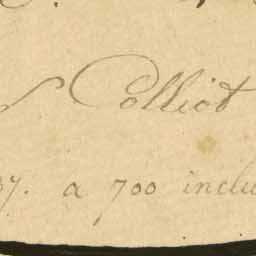 Colliot
a 700 inclu